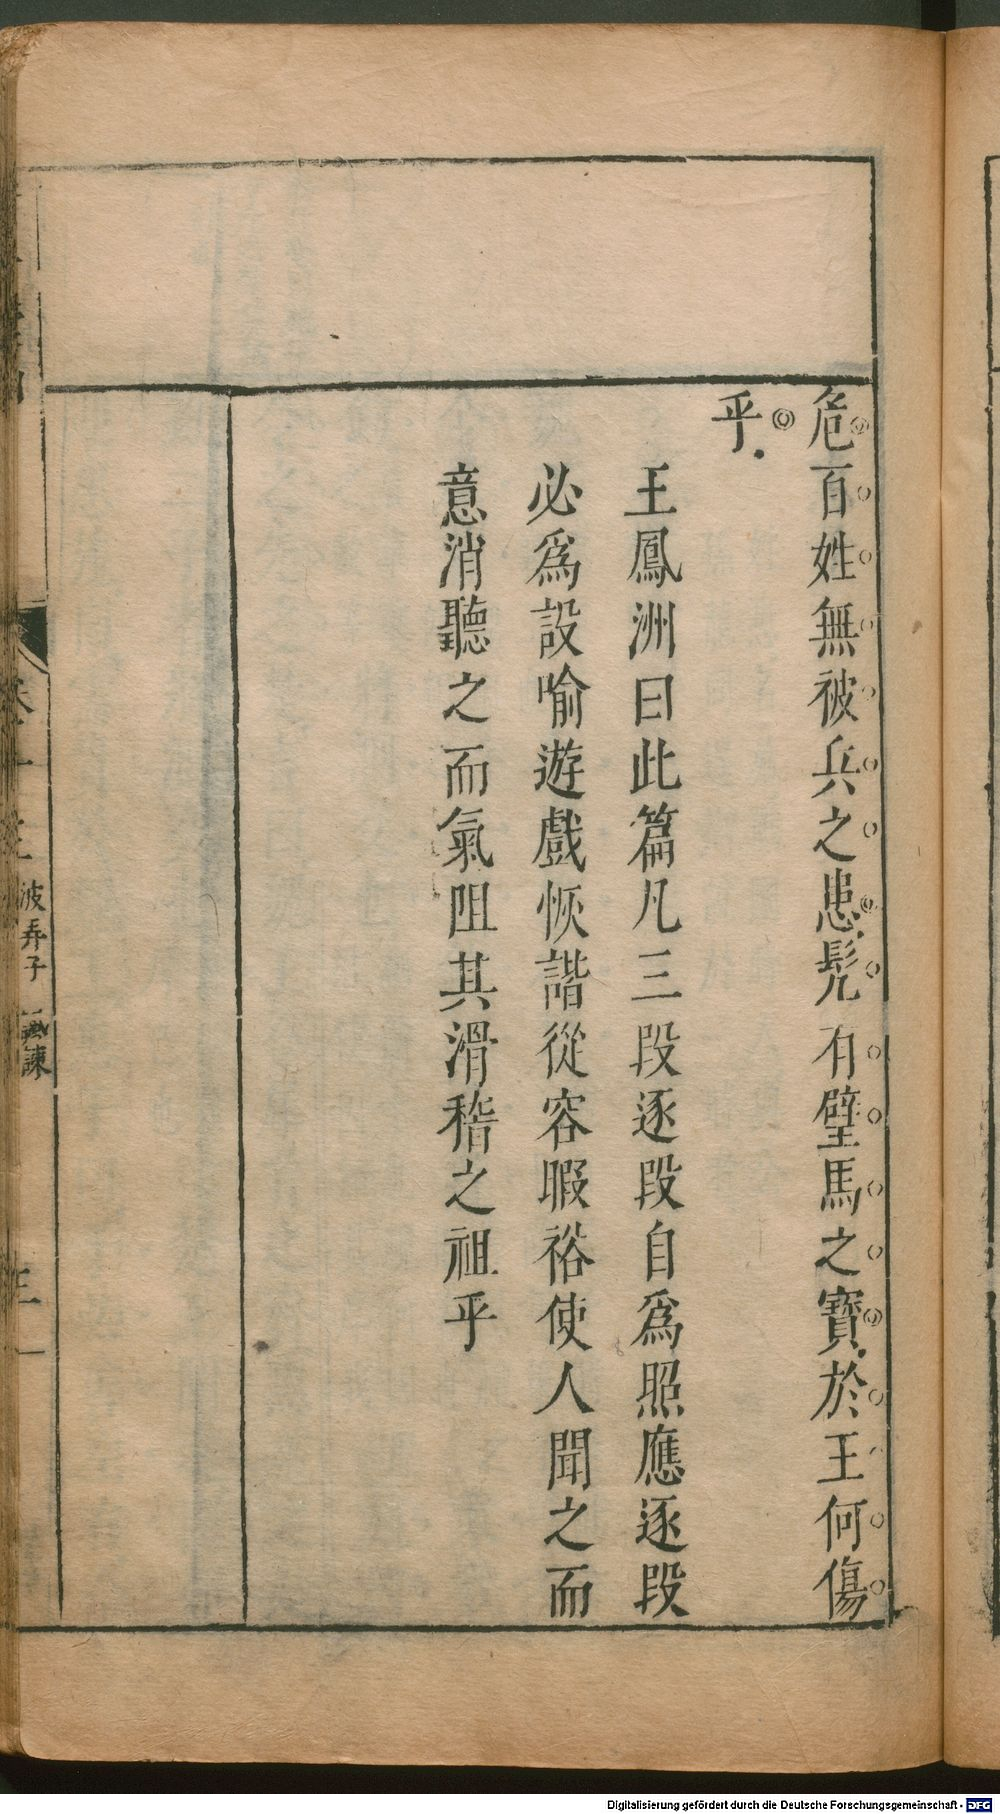 危百姓無被兵之患髡有璧馬之寶於王何傷
乎
王鳳洲曰此篇凡三段逐段自爲照應逐段
必爲設喻遊戲恢諧從容暇裕使人聞之而
意消聽之而氣阻其滑稽之祖乎
波弄子 諷諫
Digitalisierung gefördert durch die Deutsche Forschungsgemeinschaft - DFG